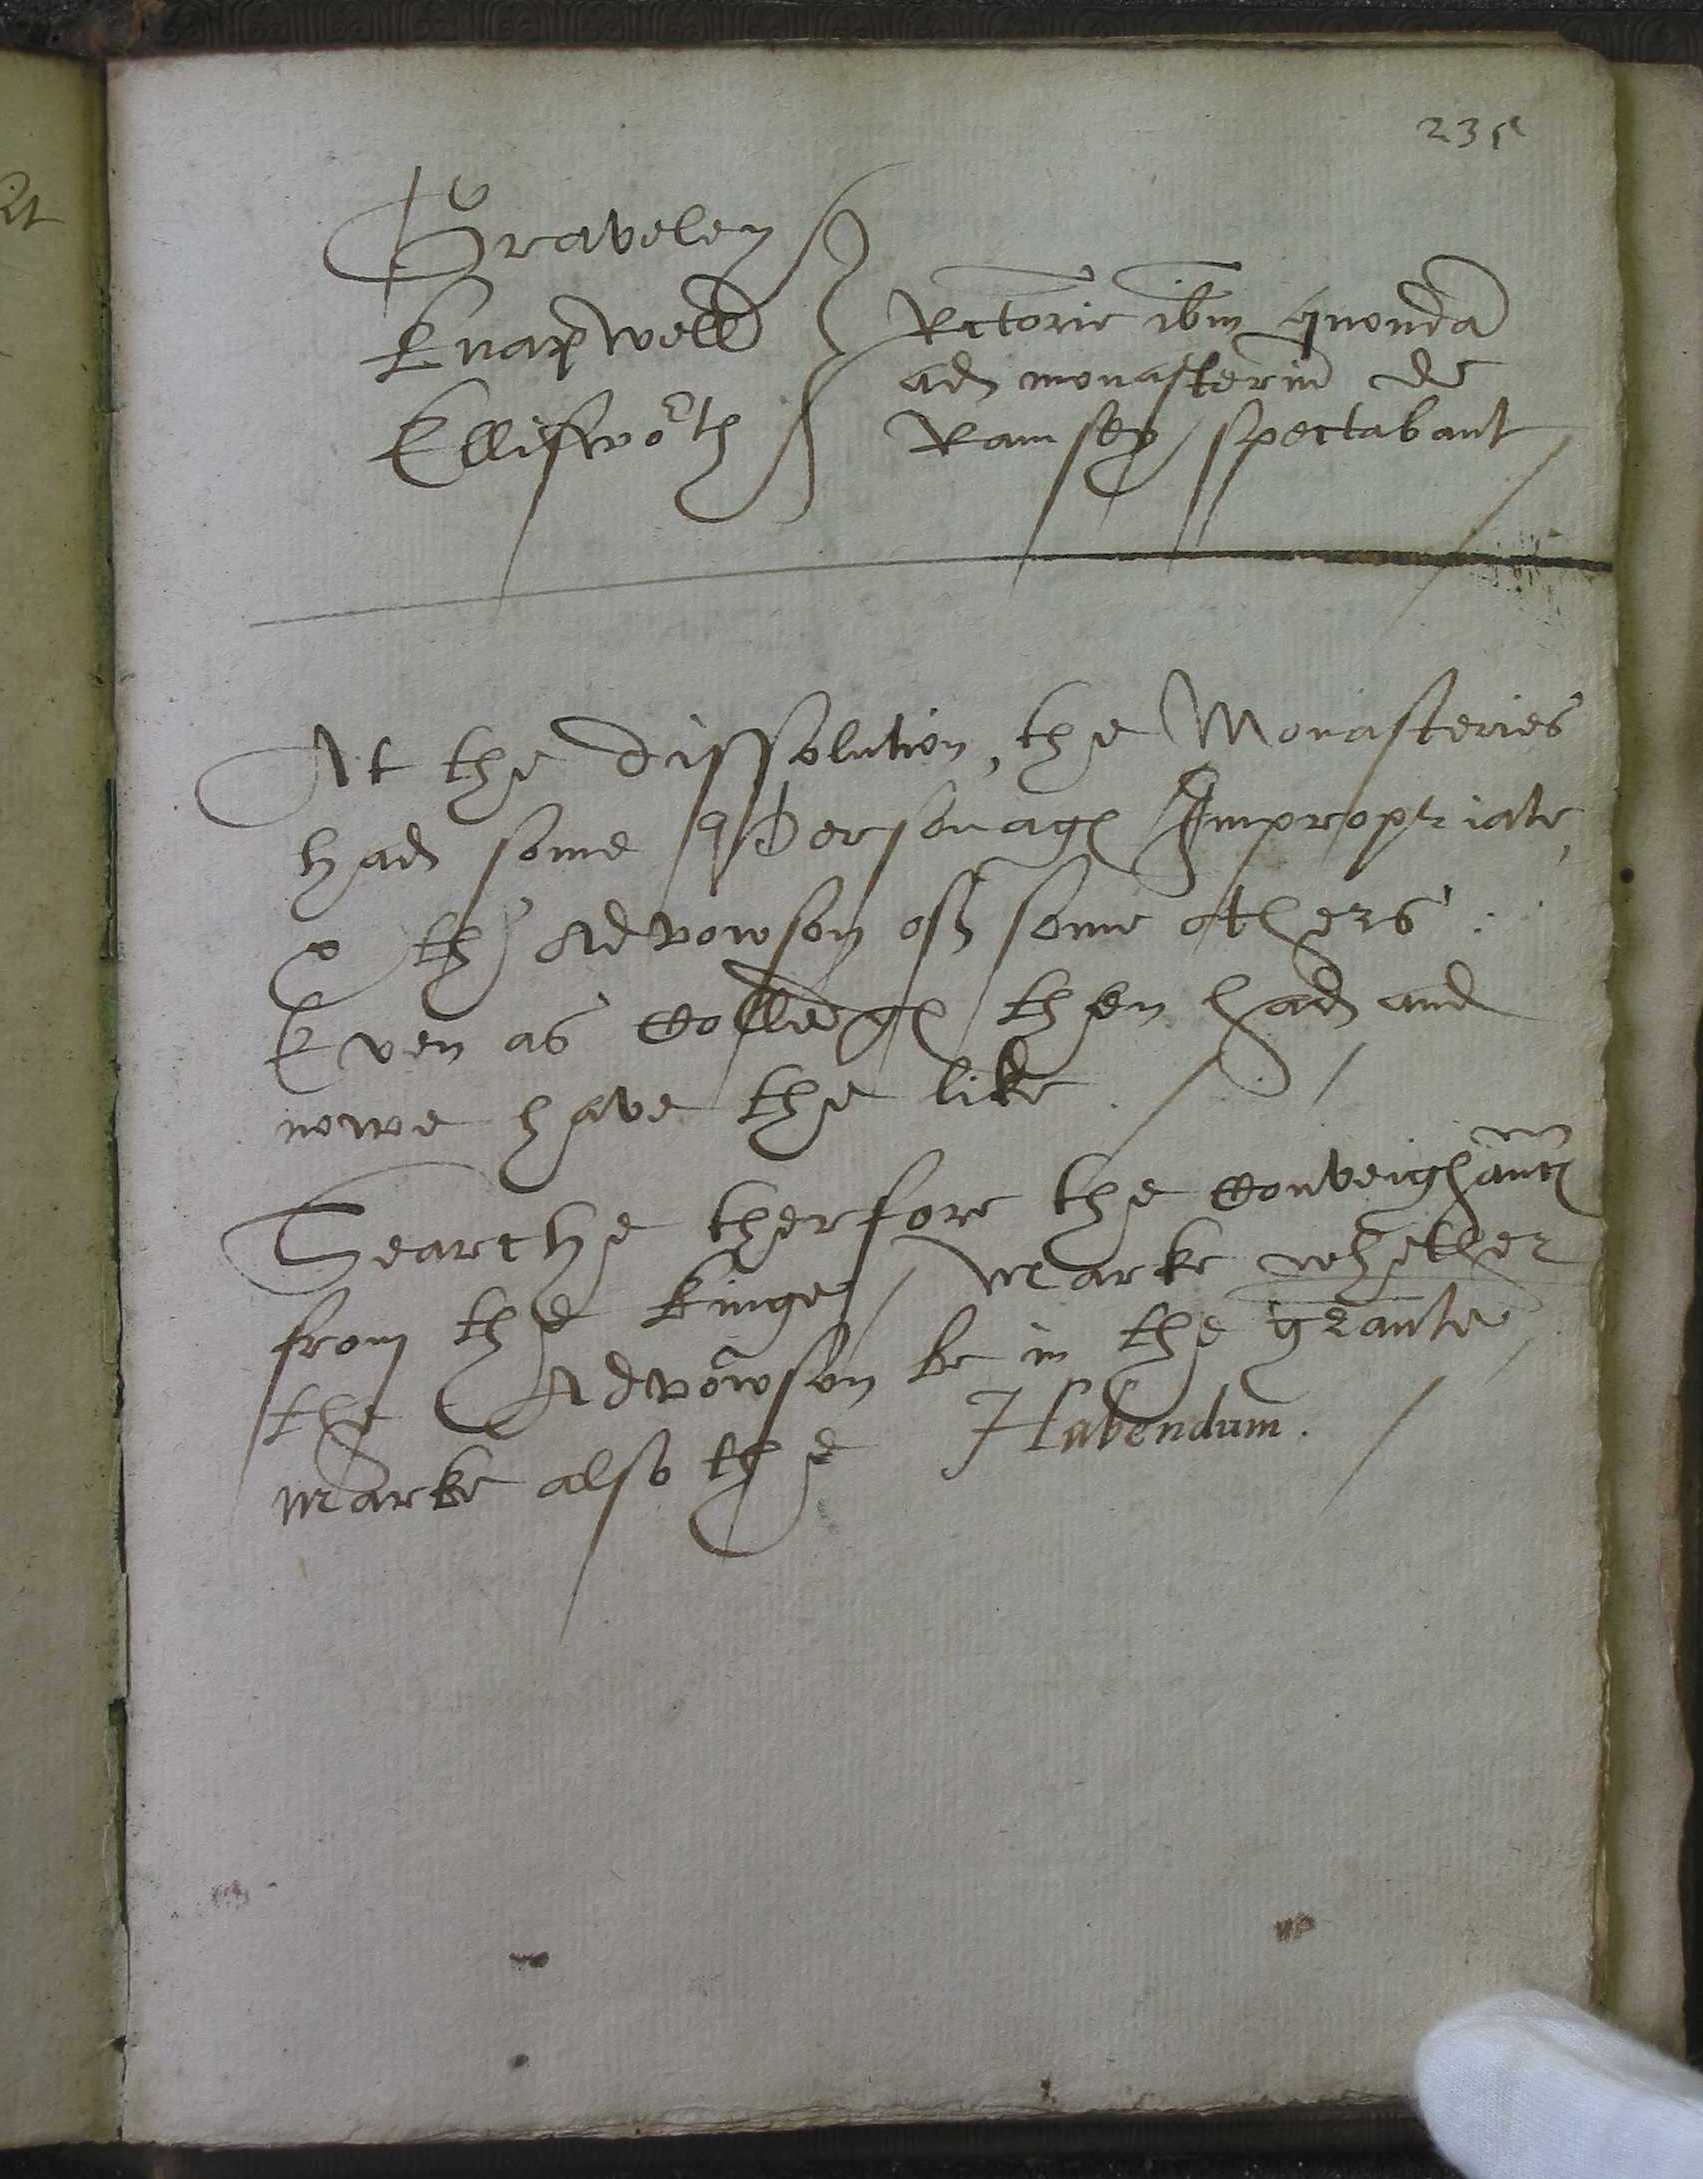 235
Graveley
Knapwell
Elliswoth
Rctorie ibm quonda
ad monasteriu de
Ramsey spectabant
At the dissolution, the Monasteries
had some Personages Impropriate,
& the Advowson of some others:
Even as Colledges then had and
nowe have the like.
Searche therfore the Conveighaunces
from the kinge / Marke whether
the Advowson be in the grante
marke also the Habendum.